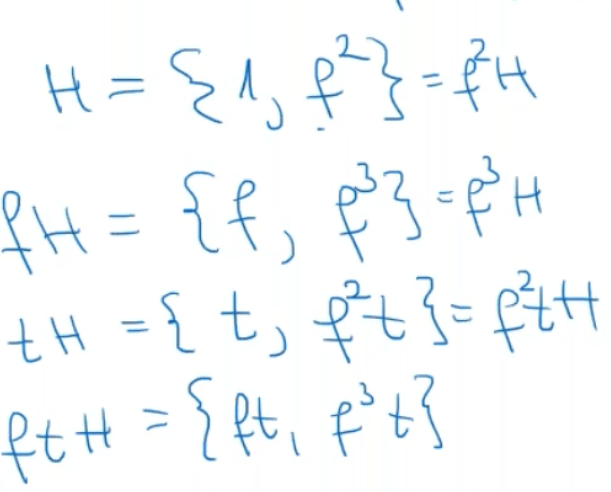 H = {1, f²} = f²H
fH = {f, f³} = f³H
tH = {t, f²t} = f²tH
ftH = {ft, f³t}